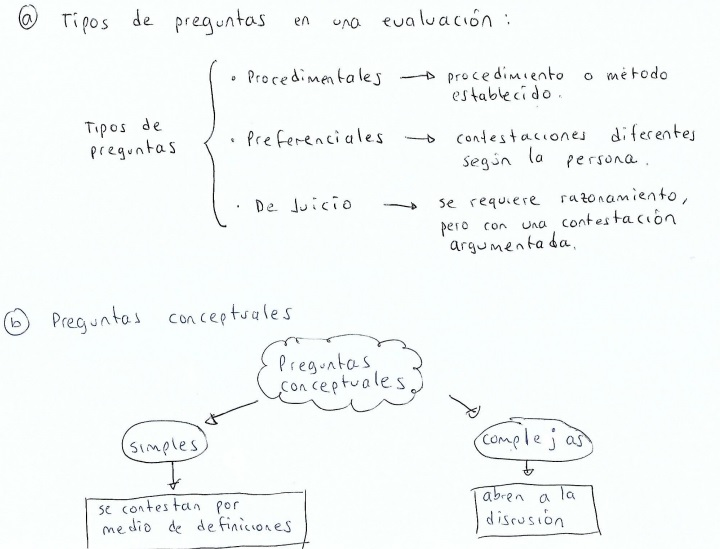 ⓐ Tipos de preguntas en una evaluación:
Tipos de
preguntas
· Procedimentales → procedimiento o método
establecido.
· Preferenciales → contestaciones diferentes
según la persona.
· De Juicio → se requiere razonamiento,
pero con una contestación
argumentada.
ⓑ Preguntas conceptuales
Preguntas
conceptuales
simples
complejas
se contestan por
medio de definiciones
abren a la
discusión